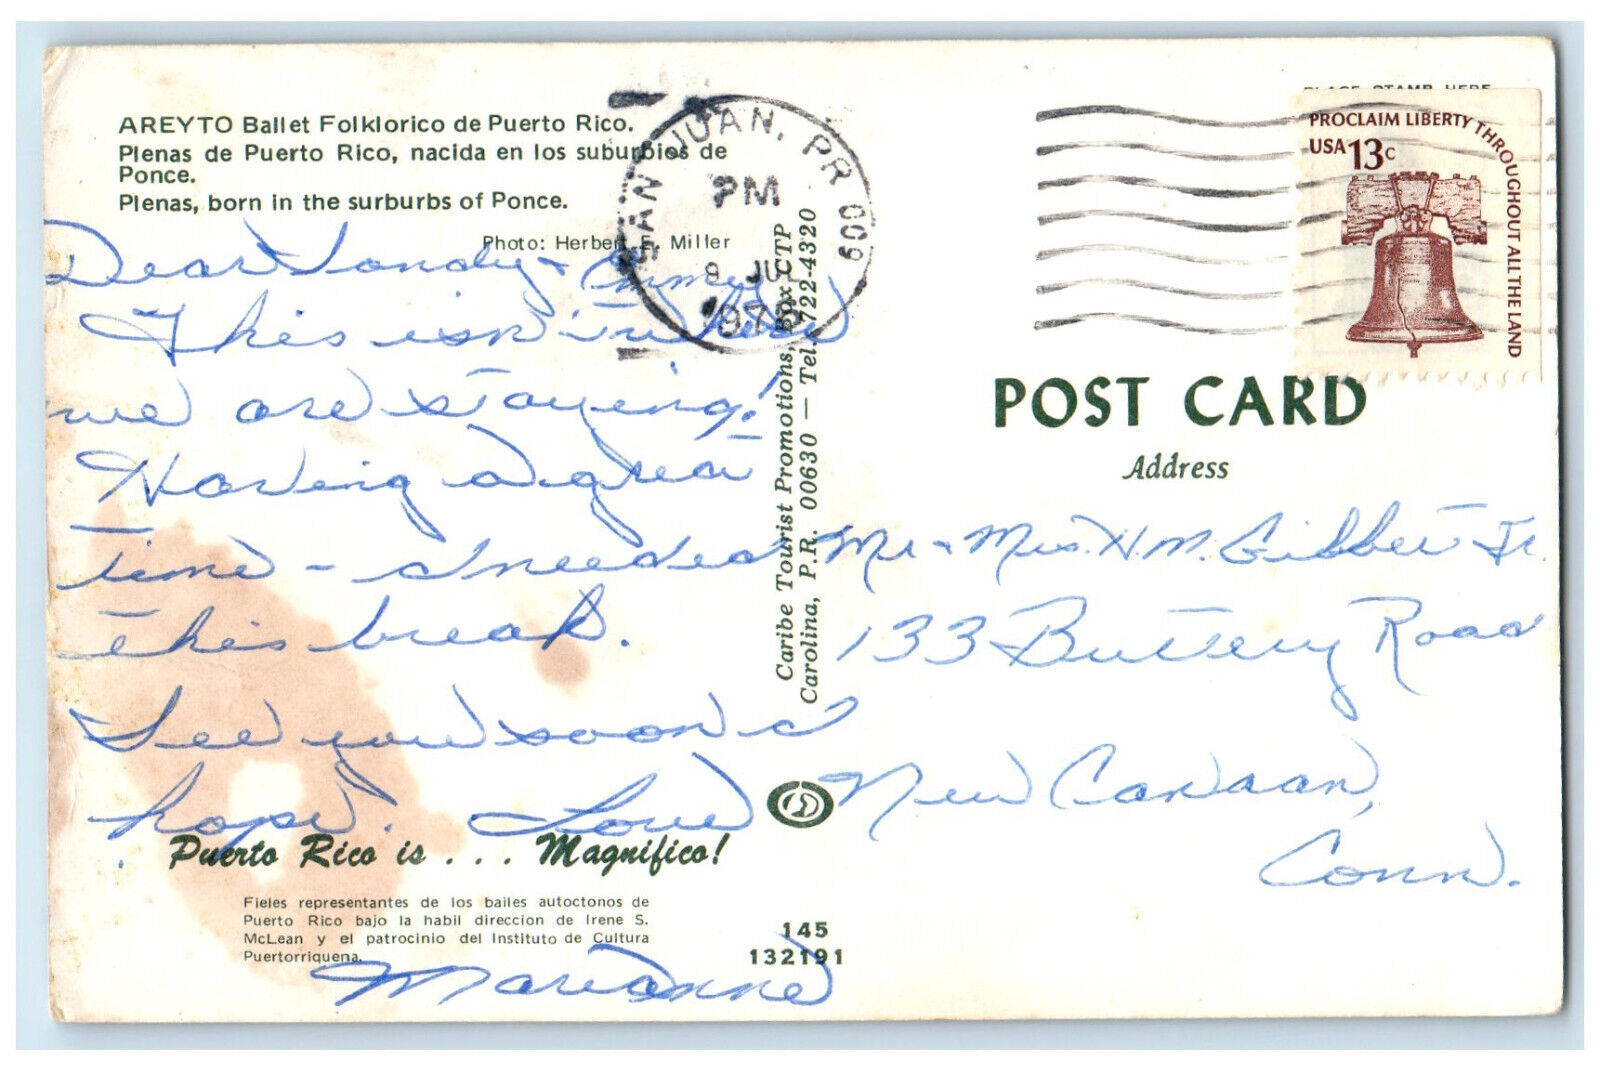 AREYTO Ballet Folklorico de Puerto Rico.
Plenas de Puerto Rico, nacida en los suburbios de
Ponce.
Plenas, born in the surburbs of Ponce.
Photo: Herbert E. Miller
Dear Sandy +
This isn't where
we are staying!
Having a great
time - I needed
this break.
See you soon I
hope. Love
Marianne
Puerto Rico is . . . Magnifico!
Fieles representantes de los bailes autoctonos de
Puerto Rico bajo la habil direccion de Irene S.
McLean y el patrocinio del Instituto de Cultura
Puertorriquena.
145
132191
Caribe Tourist Promotions, Box CTP
Carolina, P.R. 00630 — Tel. 722-4320
SAN JUAN, PR 009
PM
PLACE STAMP HERE
PROCLAIM LIBERTY THROUGHOUT ALL THE LAND
USA 13c
POST CARD
Address
Mr + Mrs. H.M. Gibbet Jr.
133 Buttery Road
New Canaan,
Conn.